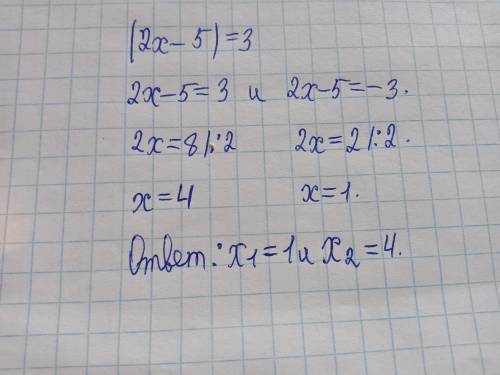 |2x-5)=3
2x-5=3 и 2x-5=-3.
2x=8|:2 2x=2|:2.
x=4 x=1.
Ответ: x₁=1 и x₂=4.